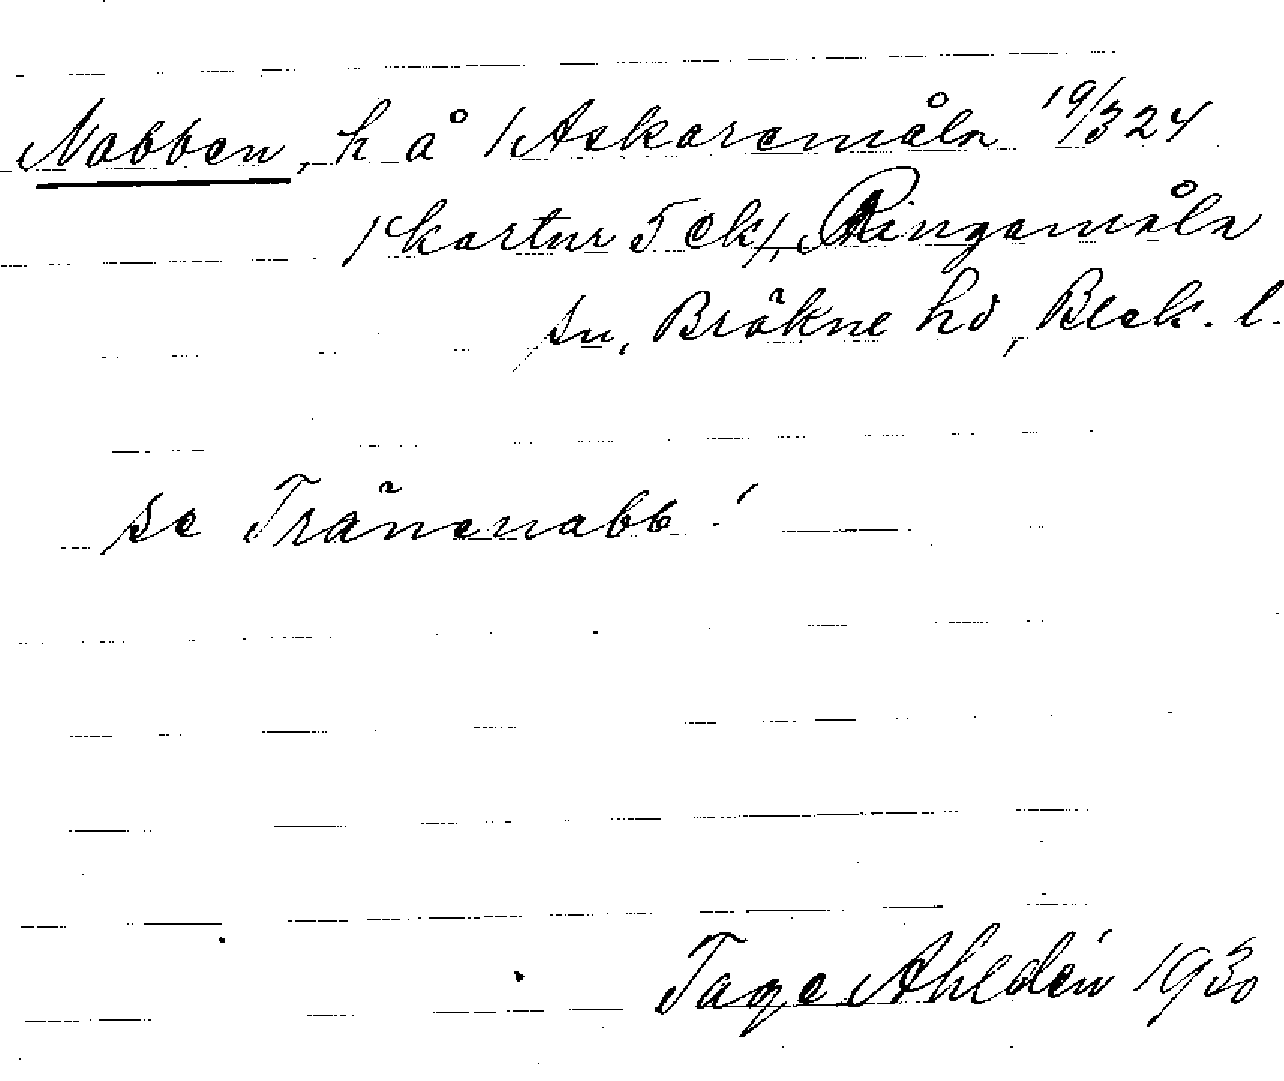 Nabben, h å /Askaremåla 19/3 24
/kartur 5 ek/, Ringamåla
sn, Bräkne hd, Blek. l.
se Tränenabb!
Tage Ahldén 1930